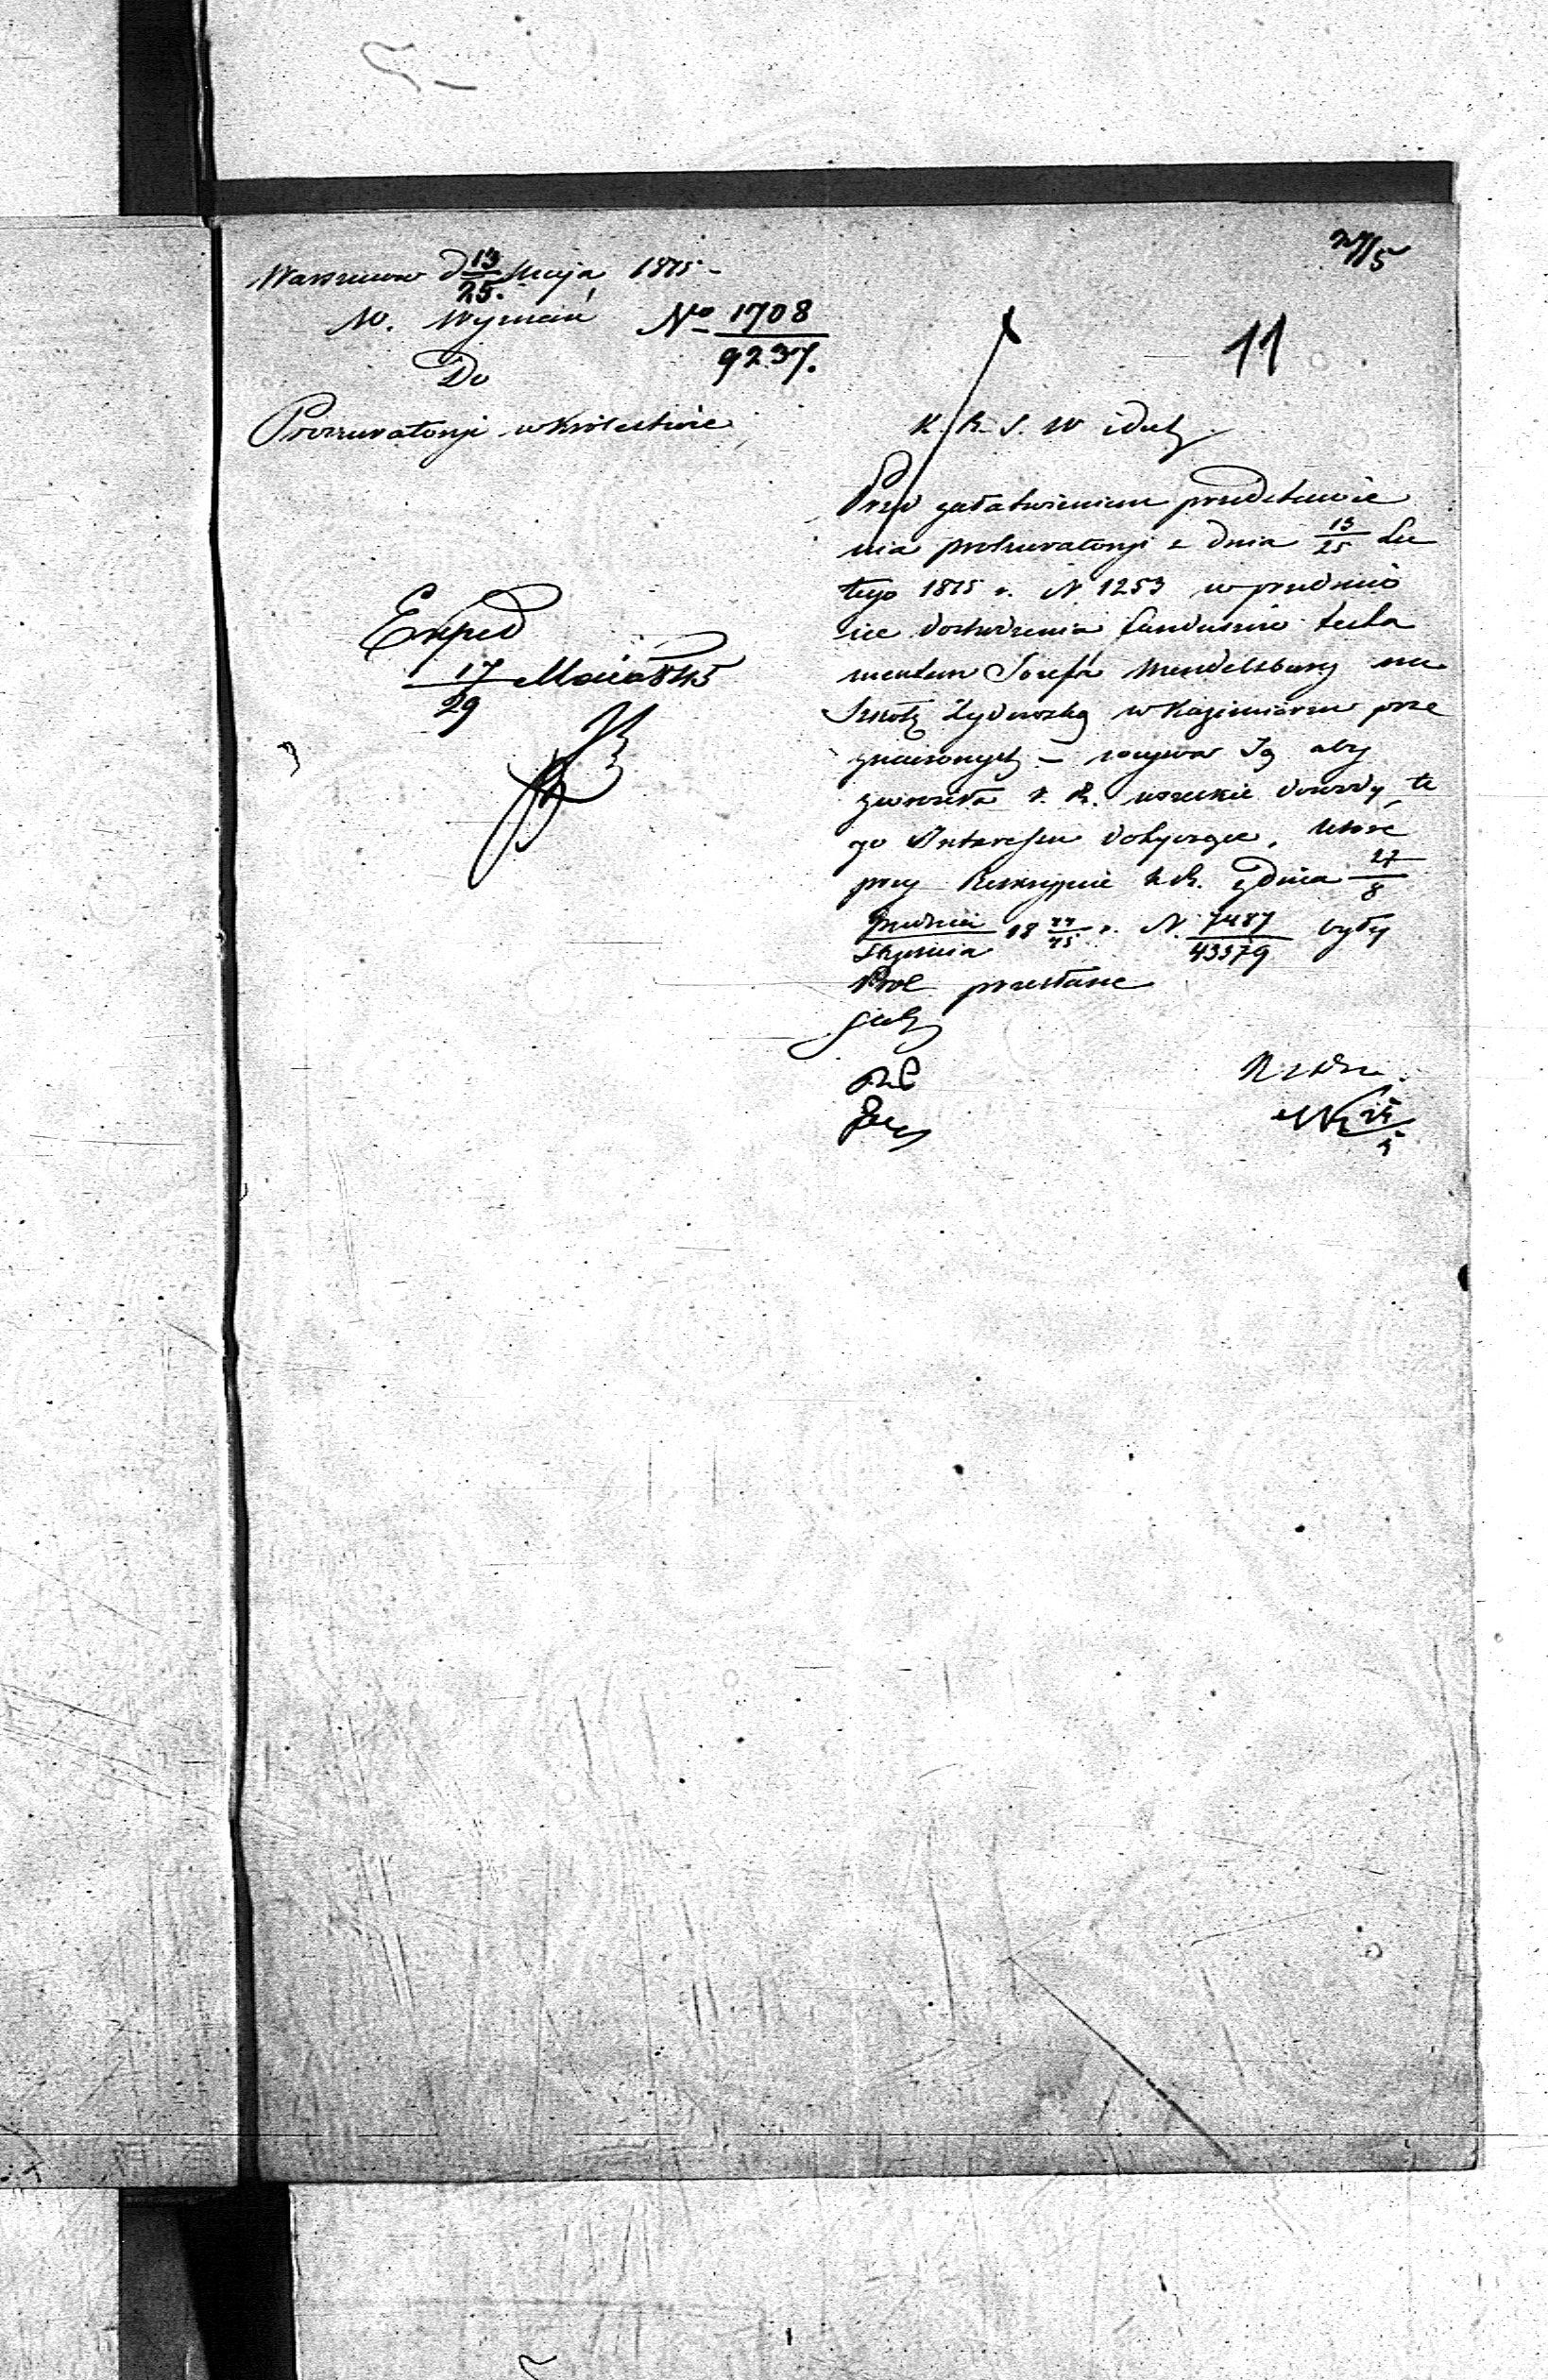 27/5
Warszawa d 13/25. Maja 1845 -
W. Wyznań No 1708/9237.
11
Do
Prokuratoryi w Królestwie
K. R. S. W i Duch
Przed załatwieniem przedstawie
nia prokuratoryi z dnia 13/25 Lu
tego 1845 r. N 1253 w przedmio
cie dochodzenia funduszów testa
mentem Józefa Mendelsburg na
Szkołę Żydowską w Kazimierzu prze
znaczonych – wzywa Ją aby
zwróciła K. R. wszelkie dowody te
go Interessu dotyczące, które
przy Reskrypcie K.R. z dnia 27/8
Grudnia/Stycznia 18 44/45 r. N. 7487/43379 były
Prok przesłane
Exped
17/29 Maja 845